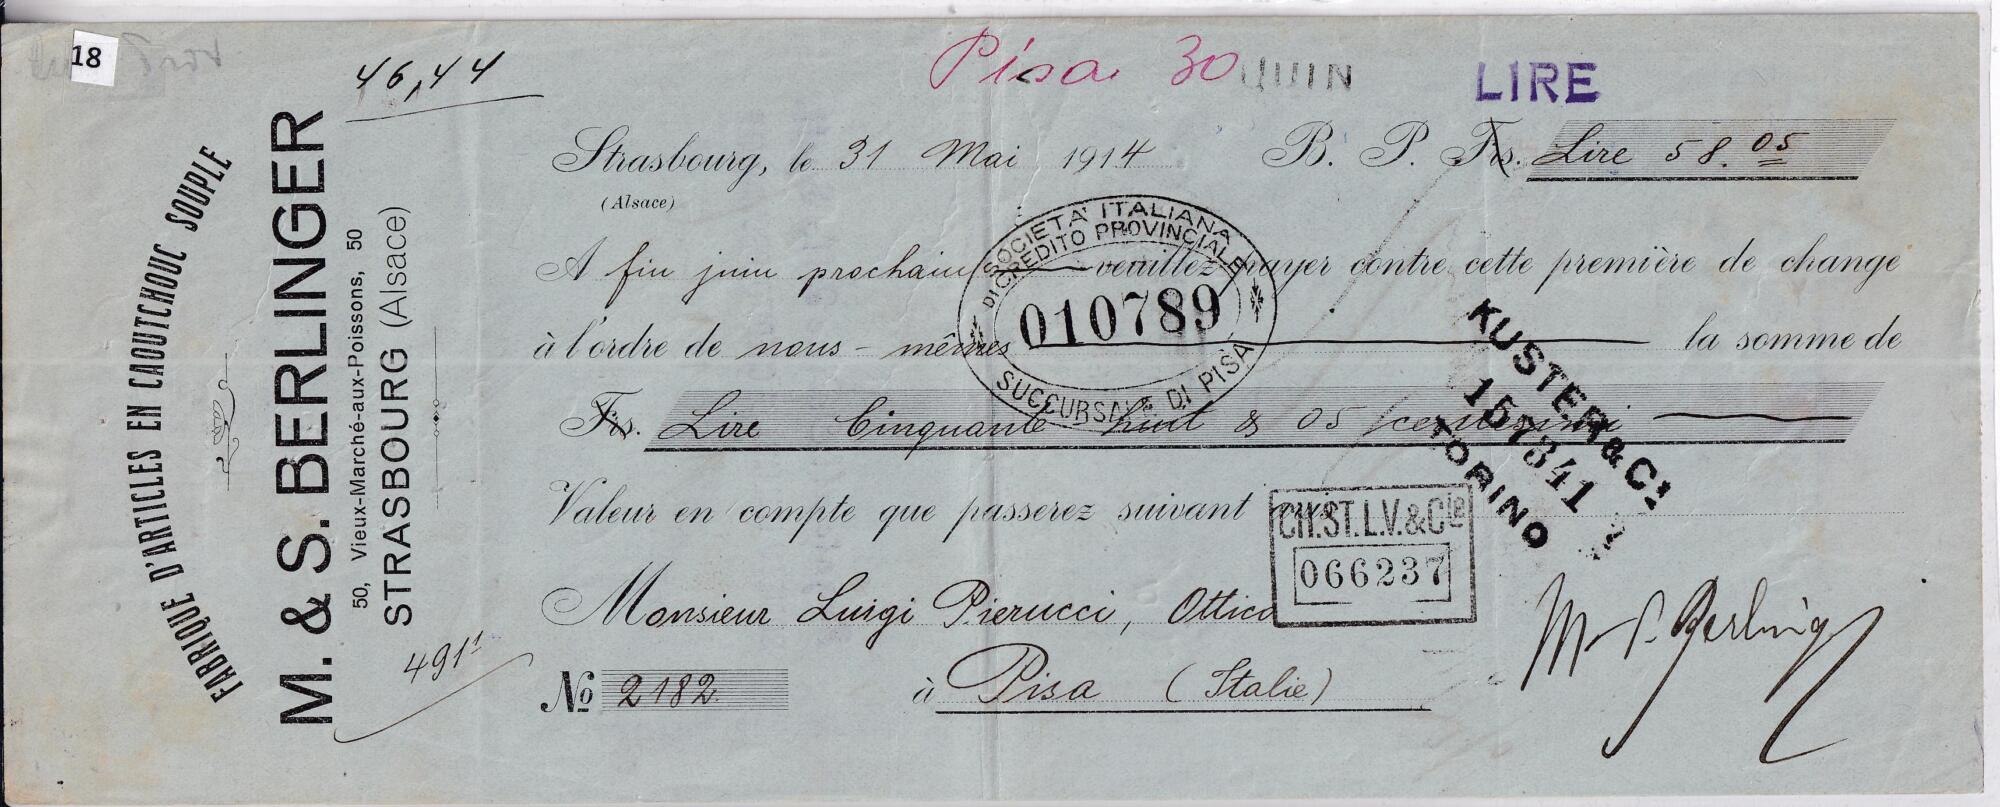 18
46,44
Pisa 30 JUIN
LIRE
FABRIQUE D'ARTICLES EN CAOUTCHOUC SOUPLE
M. & S. BERLINGER
50, Vieux-Marché-aux-Poissons, 50
STRASBOURG (Alsace)
Strasbourg, le 31 Mai 1914 B. P. Frs. Lire 58.05
(Alsace)
A fin juin prochain veuillez payer contre cette première de change
à l'ordre de nous-mêmes la somme de
Frs. Lire Cinquante huit & 05 /centesimi
Valeur en compte que passerez suivant avis
Monsieur Luigi Pierucci, Ottico
No 2182. à Pisa (Italie)
SOCIETA' ITALIANA
DI CREDITO PROVINCIALE
010789
SUCCURSALE DI PISA
KUSTER & Ci
157341
TORINO
CH.ST.L.V.&Cie
066237
M & S. Berlinger